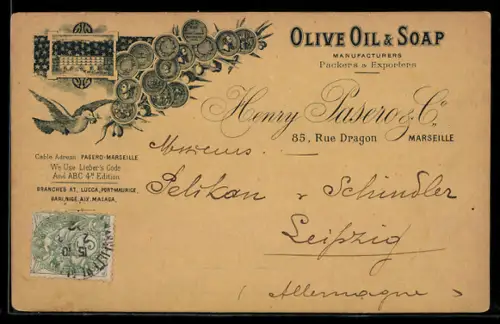 OLIVE OIL & SOAP
MANUFACTURERS
Packers & Exporters
Henry Pasero & Co
85, Rue Dragon MARSEILLE
Cable Adress: PASERO-MARSEILLE
We Use Lieber's Code
And ABC 4th Edition
BRANCHES AT, LUCCA, PORT-MAURICE,
BARI, NICE, AIX, MALAGA,
Messieurs
Pelikan & Schindler
Leipzig
(Allemagne)
5